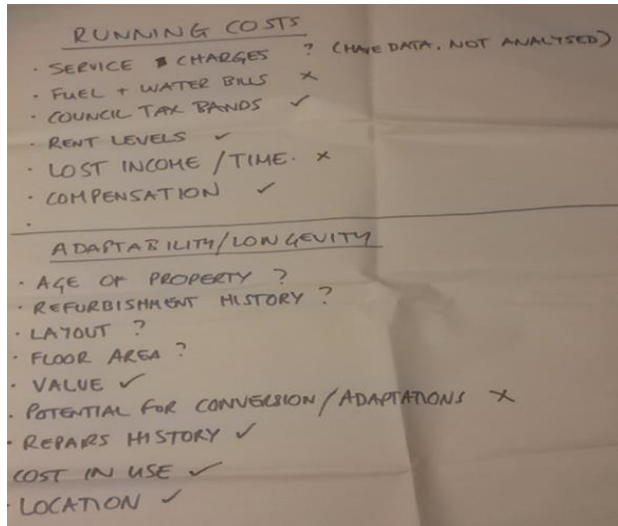 RUNNING COSTS
· SERVICE CHARGES ? (HAVE DATA, NOT ANALYSED)
· FUEL + WATER BILLS ✗
· COUNCIL TAX BANDS ✓
· RENT LEVELS ✓
· LOST INCOME / TIME. ✗
· COMPENSATION ✓
·
ADAPTABILITY/LONGEVITY
· AGE OF PROPERTY ?
· REFURBISHMENT HISTORY ?
· LAYOUT ?
· FLOOR AREA ?
· VALUE ✓
· POTENTIAL FOR CONVERSION/ADAPTATIONS ✗
· REPAIRS HISTORY ✓
COST IN USE ✓
· LOCATION ✓